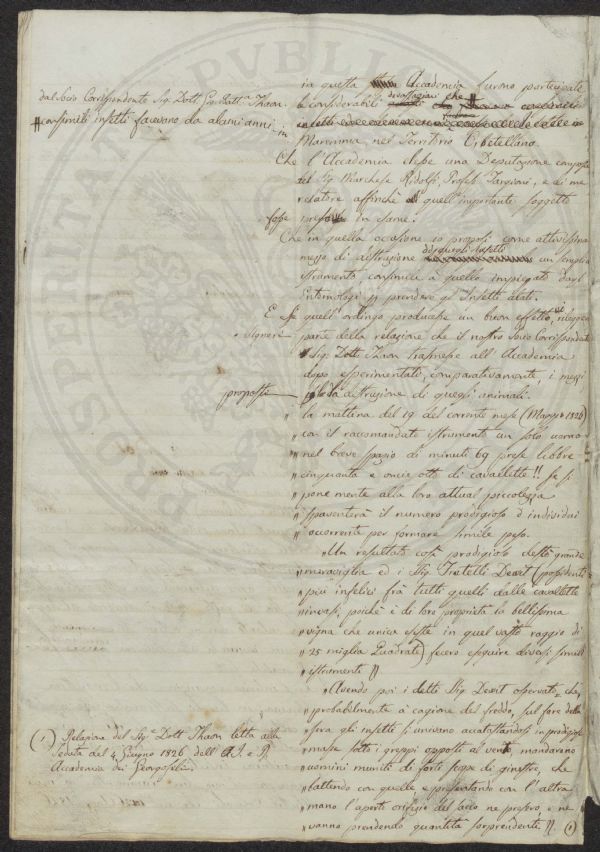 in questa Accademia furono partecipate
dal Socio Corrispondente Sig. Dott. Thaon
le considerabili devastazioni che
consimili insetti facevano da alcuni anni in
Maremma nel Territorio Orbetellano.
Che l'Accademia elesse una Deputazione composta
del Sig. Marchese Ridolfi, Profess. Targioni, e di me
relatore affinchè quell'importante soggetto
fosse preso in esame.
Che in quella occasione io proposi come attivissimo
mezzo di distruzione di quegli insetti un semplice
istrumento consimile a quello impiegato dagl'
Entomologi p. prendere gl'Insetti alati.
E se quell'ordingo producesse un buon effetto,
parte della relazione che il nostro Socio Corrispondente
Sig. Dott. Thaon trasmesse all'Accademia
dopo esperimentati, comparativamente, i mezzi
proposti p. la distruzione di quegli animali.
" la mattina del 19 del corrente mese (Maggio 1826)
" con il raccomandato istrumento un solo uomo
" nel breve spazio di minuti 69 prese libbre
" cinquanta e oncie otto di cavallette!! se si
" pone mente alla loro attual piccolezza
" spaventerà il numero prodigioso d'individui
" occorrente per formare simile peso.
" Un resultato così prodigioso destò grande
" meraviglia ed i Sig. Fratelli (possidenti
" più infelici frà tutti quelli dalle cavallette
" invasi, poichè è di loro proprietà la bellissima
" vigna che unica esiste in quel vasto raggio di
" 25 miglia Quadrate) fecero eseguire diversi simili
" istrumenti
" Avendo poi i detti Sig. osservato, che,
" probabilmente a cagione del freddo, sul fare della
" sera gli insetti si univano accatastandosi in prodigiose
" masse sotto i greppi opposti al vento mandarono
" uomini muniti di forti scope di ginestre, che
" battendo con quelle, e presentando con l'altra
" mano l'aperto orifizio del sacco ne presero, e ne
" vanno prendendo quantità sorprendente. (1)
(1) Relazione del Sig. Dott. Thaon letta alla
seduta del 4 Giugno 1826 dell'A. I. e R.
Accademia dei Georgofili.